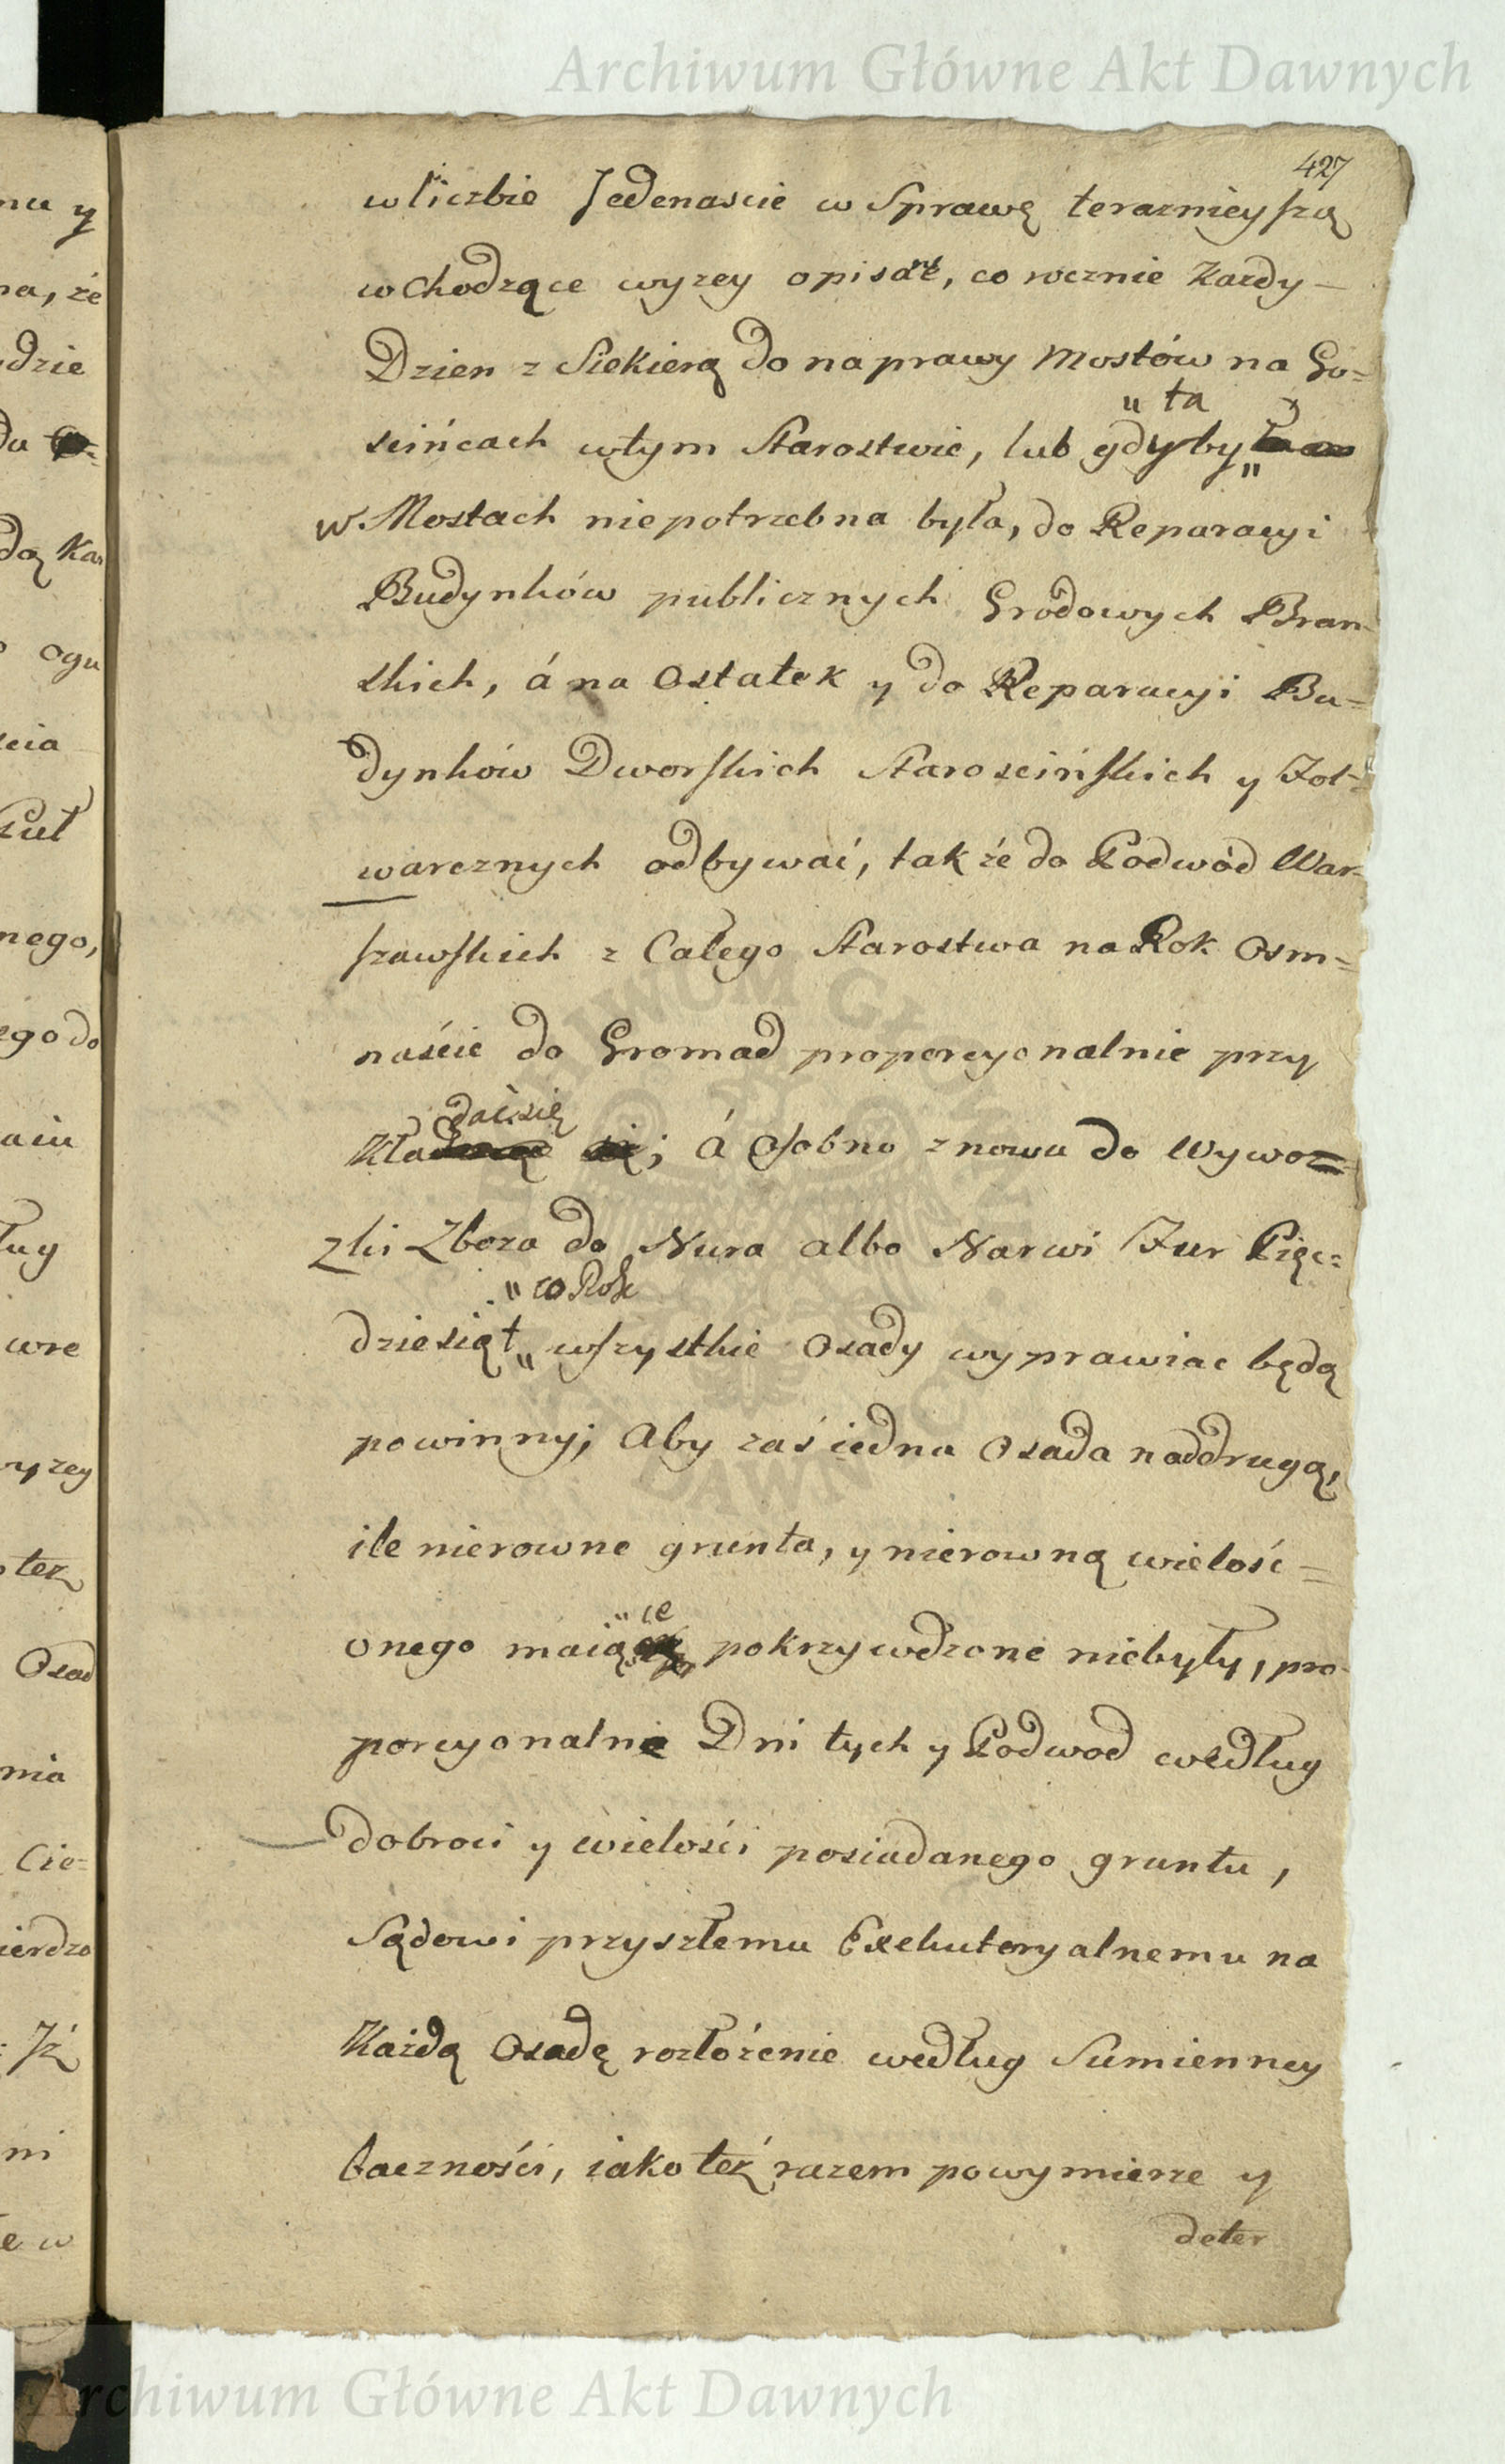 Archiwum Główne Akt Dawnych
427
w liczbie Jedenascie w Sprawę teraznieyszą
wchodzące wyzey opisane, co rocznie Kazdy
Dzien z Siekierą do naprawy Mostów na Go=
scińcach w tym Starostwie, lub gdyby
" ta
w Mostach niepotrzebna była, do Reparacyi
Budynków publicznych Grodowych Bran=
skich, á na Ostatek y do Reparacyi Bu=
dynków Dworskich Starościńskich y Fol=
warcznych odbywać, także do Podwód War=
szawskich z Całego Starostwa na Rok Osm=
naście do Gromad proporcyonalnie przy
daisię
Kła ; á Osobno znowu do Wywoz=
zki Zboza do Nura albo Narwi Fur Pięc=
" co Rok
dziesiąt " wszystkie Osady wyprawiac będą
powinny; Aby zaś iedna Osada nad drugą,
ile nierowne grunta, y nierowną wielość =
" ce
onego maią pokrzywdzone niebyły, pro=
porcyonalne Dni tych y Podwod według
dobroci y wielości posiadanego gruntu,
Sądowi przyszłemu Exekutoryalnemu na
Każdą Osadę rozłóżenie według Sumienney
baczności, iako też razem powymierze y
deter
mu y
na, że
dzie
dą Kar
ogu
scia
nego,
ego do
ług
wre
wyzey
też
Osad
nia
Cie=
ierdzo
Iż
ni
e w
Archiwum Główne Akt Dawnych